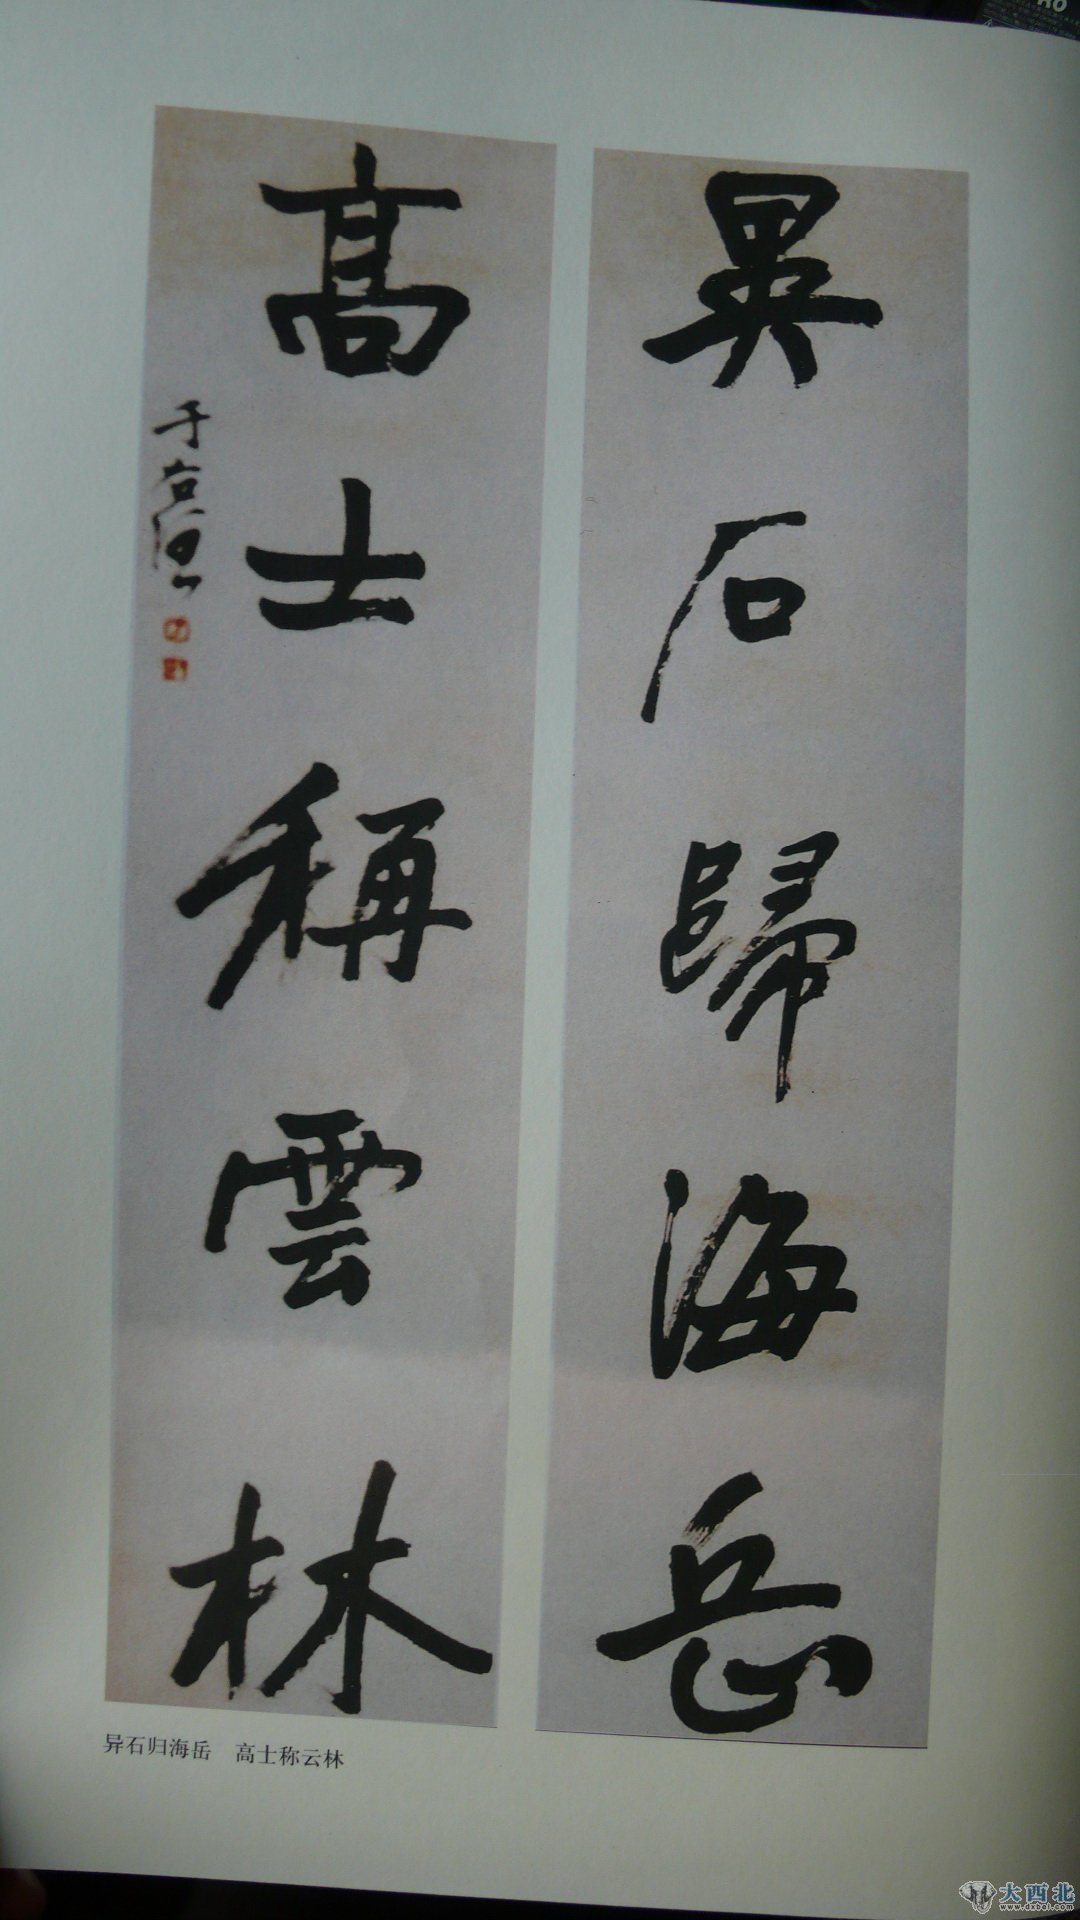 異石歸海岳
高士稱雲林
于右任
异石归海岳 高士称云林
大西北
www.dxbei.com